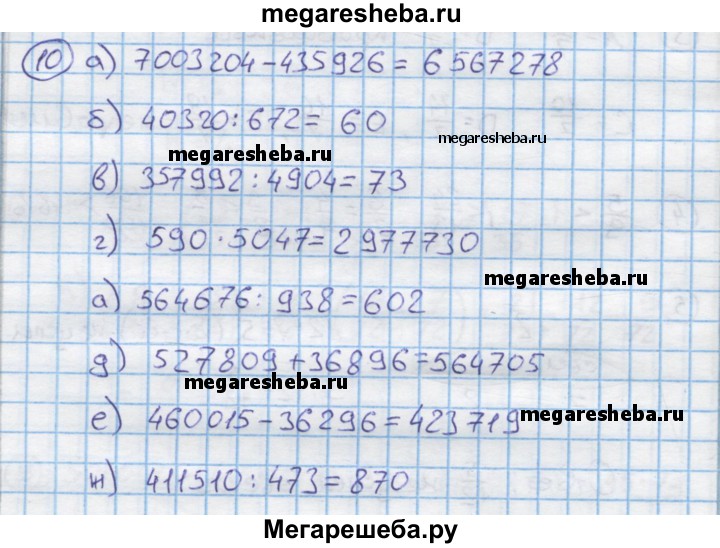 megaresheba.ru
10 а) 7003204-435926 = 6567278
б) 40320:672= 60
megaresheba.ru
megaresheba.ru
в) 357992:4904=73
г) 590·5047=2977730
megaresheba.ru
а) 564676:938=602
д) 527809+36896=564705
megaresheba.ru
е) 460015-36296=423719
megaresheba.ru
ж) 411510:473=870
Мегарешеба.ру